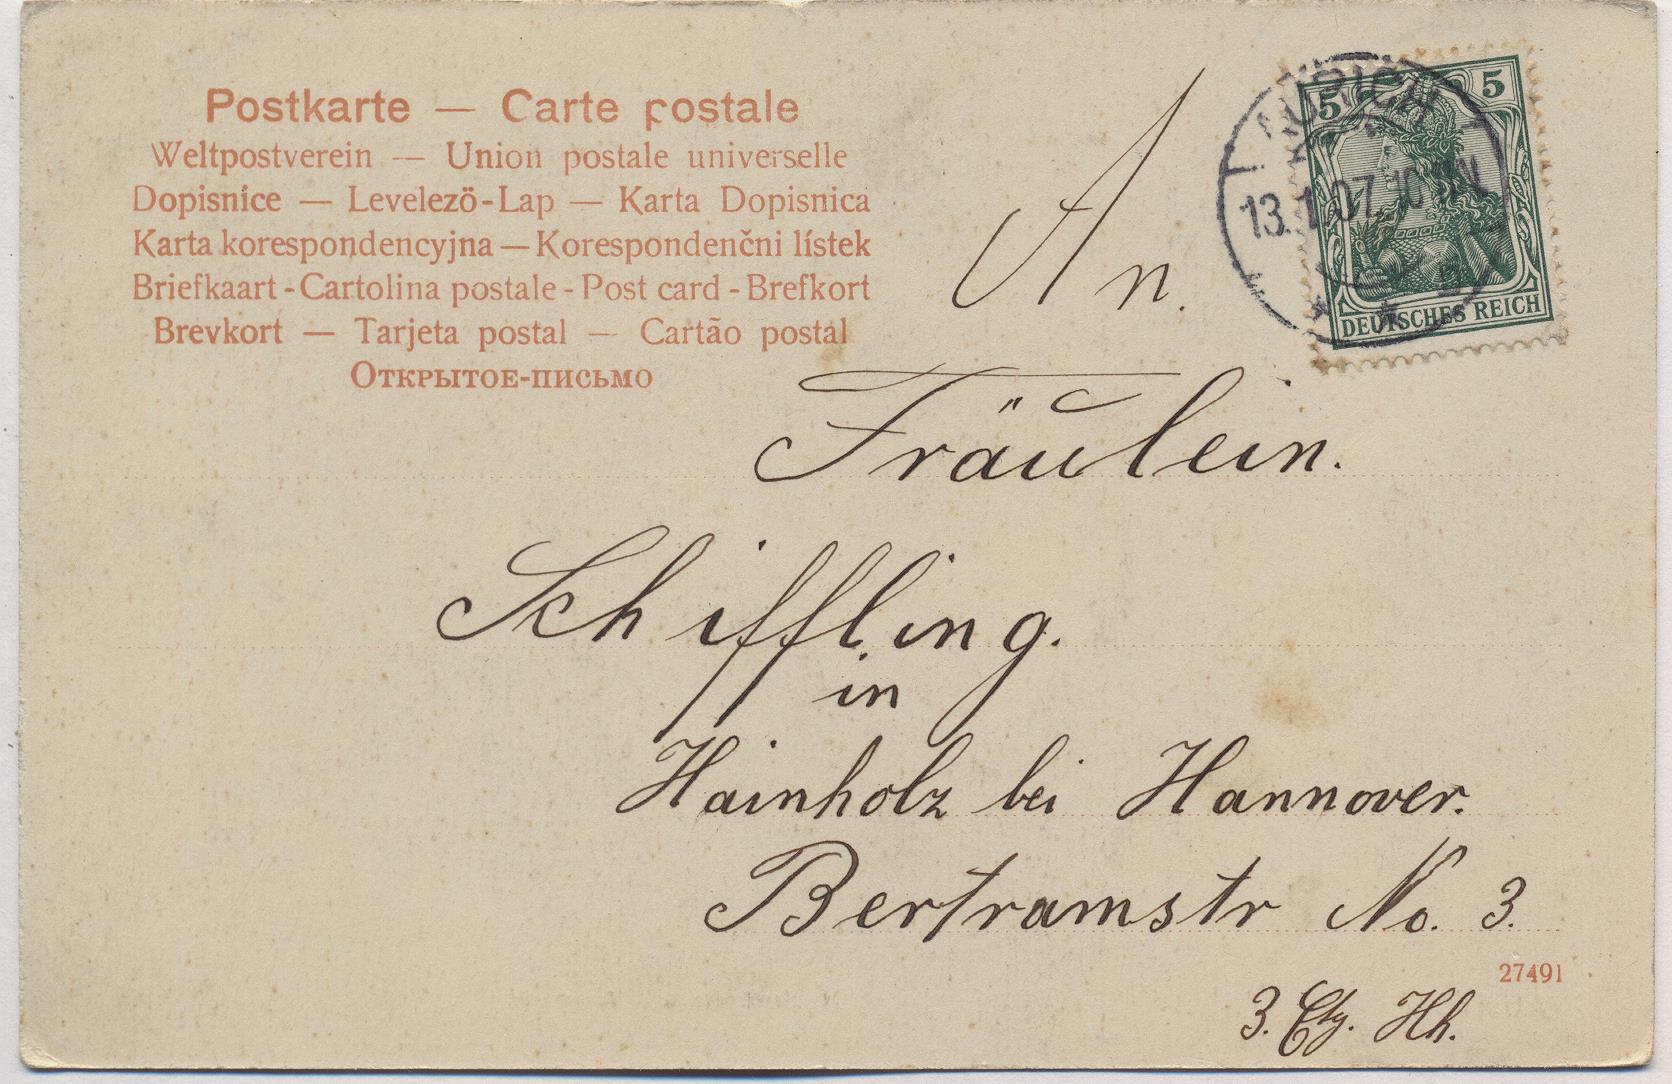 Postkarte — Carte postale
Weltpostverein — Union postale universelle
Dopisnice — Levelezö-Lap — Karta Dopisnica
Karta korespondencyjna — Korespondenčni lístek
Briefkaart - Cartolina postale - Post card - Brefkort
Brevkort — Tarjeta postal — Cartão postal
Открытое-письмо
AURICH
13.1.07.10-11N
5 5
DEUTSCHES REICH
An.
Fräulein.
Schiffling.
in
Hainholz bei Hannover.
Bertramstr No. 3.
27491
3. Etg. Hh.